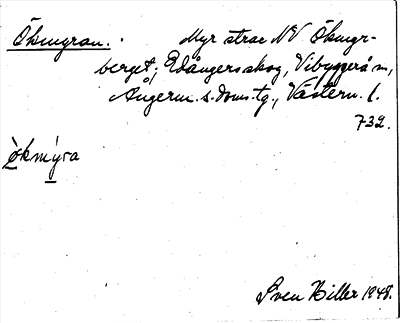 Ökmyran. Myr strax NV Ökmyr-
berget; Edångersskog, Vibyggerå sn,
Ångerm. s. doms.tg., Västern. l.
732.
ökmýra
Sven Hiller 1948.